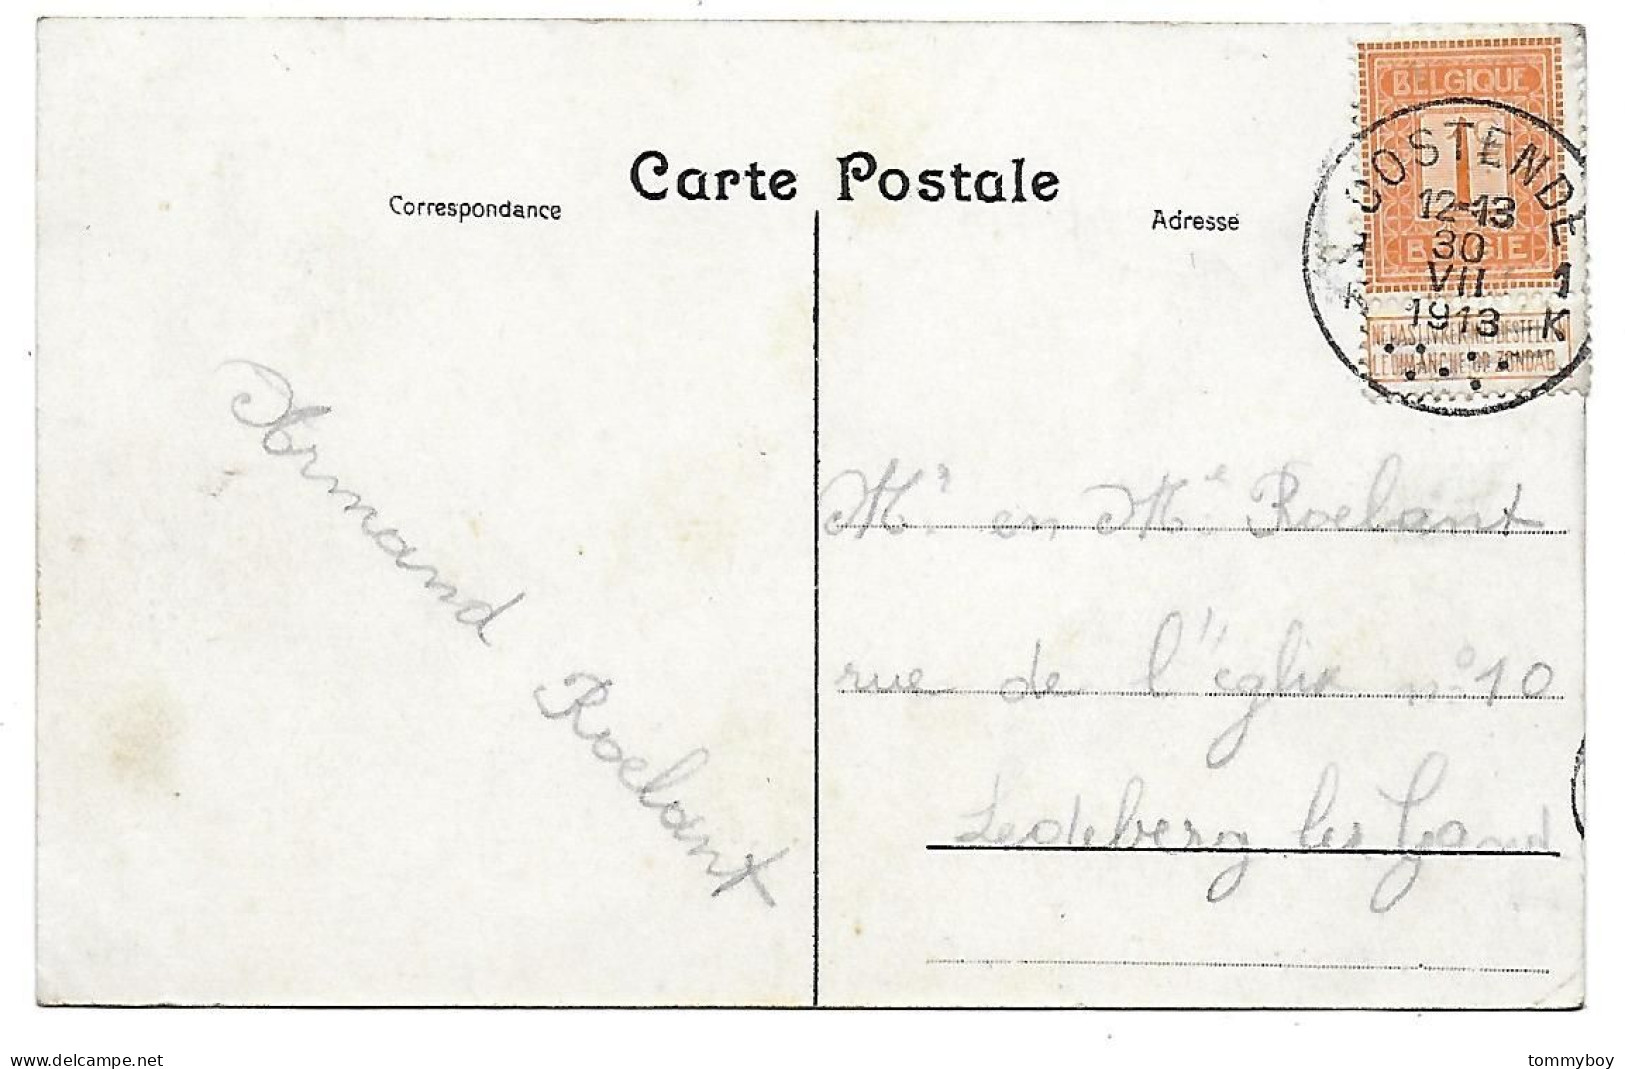 Carte Postale
Correspondance
Adresse
BELGIQUE
1
BELGIË
NE PAS LIVRER NIET BESTELLEN
LE DIMANCHE OP ZONDAG
OOSTENDE
12-13
30
VII
1913
1
K
Armand Roelant
Mr en Me Roelant
rue de l'église n° 10
Ledeberg lez Gand
www.delcampe.net
tommyboy